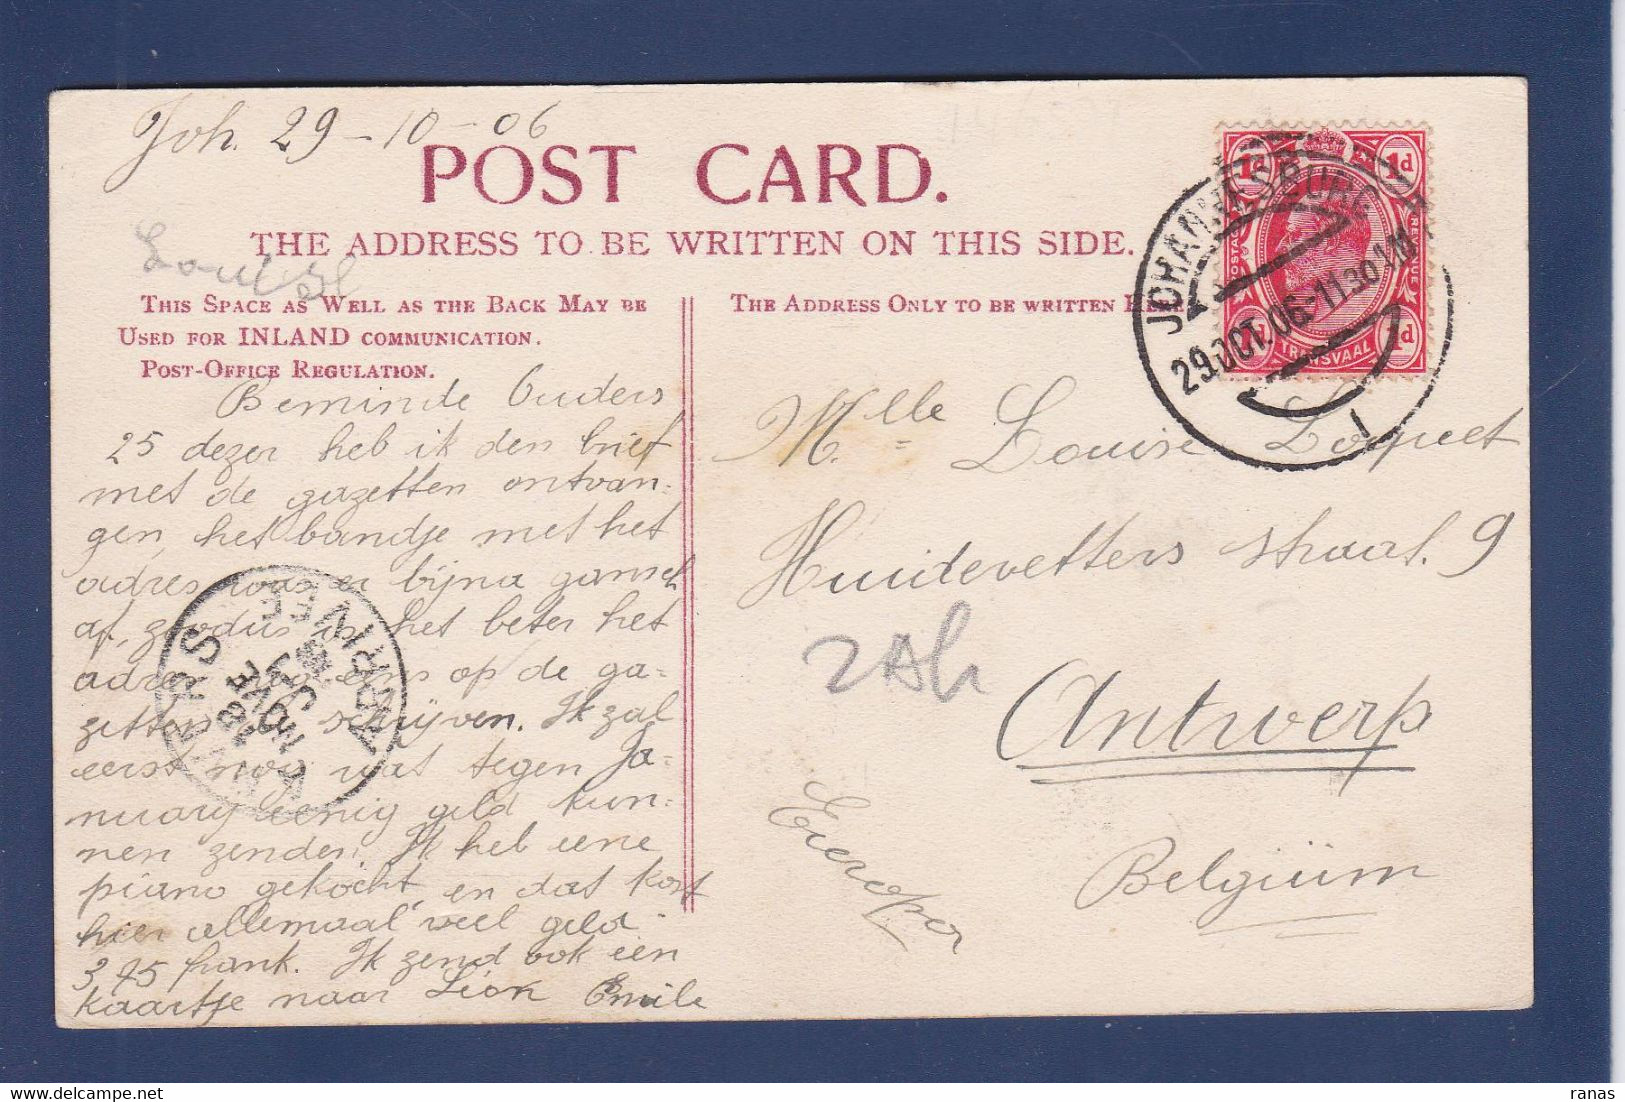 Joh. 29-10-06
POST CARD.
THE ADDRESS TO BE WRITTEN ON THIS SIDE.
THIS SPACE AS WELL AS THE BACK MAY BE
USED FOR INLAND COMMUNICATION.
POST-OFFICE REGULATION.
THE ADDRESS ONLY TO BE WRITTEN HERE
1d 1d
POSTAGE REVENUE
TRANSVAAL
JOHANNESBURG
29 OCT. 06 - 11.30
1
Beminde Ouders
25 dezer heb ik den brief
met de gazetten ontvan-
gen, het bandje met het
adres was er bijna gansch
af, zoodus is het beter het
adres nog eens op de ga-
zetten schrijven. Ik zal
eerst nog wat tegen Ja-
nuary eenig geld kun-
nen zenden. Ik heb eene
piano gekocht, en dat kost
hier allemaal veel geld
375 frank. Ik zend ook een
kaartje naar Léon Emile
ANVERS
Mlle Louise Loquet
Huidevetters straat. 9
Antwerp
Belgiüm
Europa
ranas